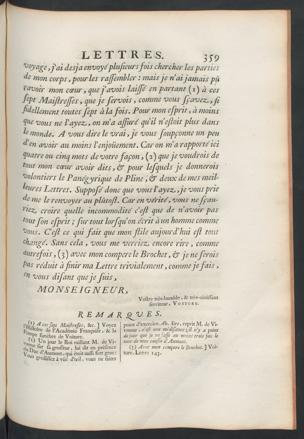 LETTRES. 359
voyage, j'ai desja envoyé plusieurs fois chercher les parties
de mon corps, pour les rassembler: mais je n'ai jamais pû
ravoir mon cœur, que j'avois laissé en partant (1) à ces
sept Maistresses, que je servois, comme vous sçavez, si
fidellement toutes sept à la fois. Pour mon esprit, à moins
que vous ne l'ayez, on m'a assuré qu'il n'estoit plus dans
le monde. A vous dire le vrai, je vous soupçonne un peu
d'en avoir au moins l'enjoüement. Car on m'a rapporté ici
quatre ou cinq mots de votre façon, (2) que je voudrois de
tout mon cœur avoir dits, & pour lesquels je donnerois
volontiers le Panégyrique de Pline, & deux de mes meil-
leures Lettres. Supposé donc que vous l'ayez, je vous prie
de me le renvoyer au plûtost. Car en vérité, vous ne sçau-
riez croire quelle incommodité c'est que de n'avoir pas
tout son esprit; sur tout lorsqu'on écrit à un homme comme
vous. C'est ce qui fait que mon stile aujourd'hui est tout
changé. Sans cela, vous me verriez encore rire, comme
autrefois, (3) avec mon compere le Brochet, & je ne serois
pas réduit à finir ma Lettre trivialement, comme je fais,
en vous disant que je suis,
MONSEIGNEUR,
Vostre trés-humble, & trés-obéissant
serviteur, VOITURE.
REMARQUES.
(1) A ces sept Maistresses, &c. ] Voyez
l'Histoire de l'Académie Françoise, & la
Pompe funebre de Voiture.
(2) Un jour le Roi raillant M. de Vi-
vonne sur sa grosseur, lui dit en présence
du Duc d'Aumont, qui étoit aussi fort gros:
Vous grossissez à vûë d'œil, vous ne faites
point d'exercice. Ah. Sire, reprit M. de Vi-
vonne: c'est une médisance; il n'y a point
de jour que je ne fasse au moins trois fois le
tour de mon cousin d'Aumont.
(3) Avec mon compere le Brochet. ] Voi-
ture, Lettre 143.